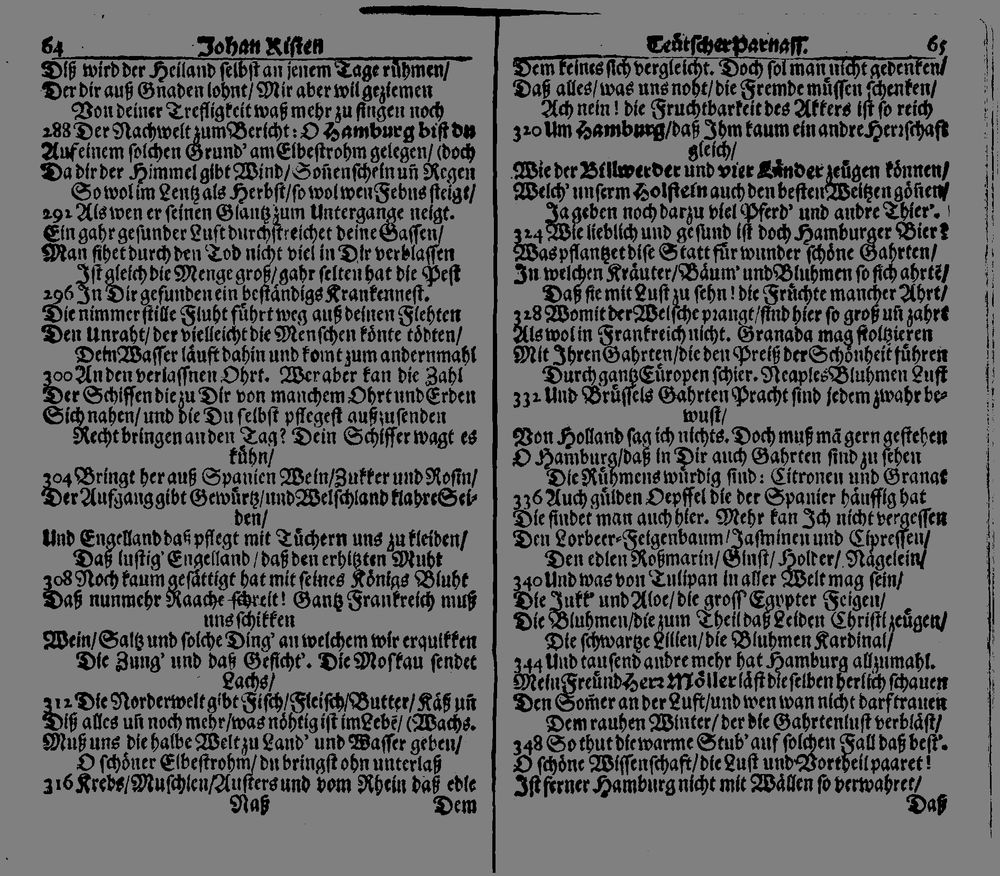 64 Johan Risten
Diß wird der Heiland selbst an jenem Tage rühmen/
Der dir auß Gnaden lohnt/ Mir aber wil geziemen
Von deiner Trefligkeit waß mehr zu singen noch
288 Der Nachwelt zum Bericht: O Hamburg bist du
Auf einem solchen Grund' am Elbestrohm gelegen/ (doch
Da dir der Himmel gibt Wind/ Soñenschein uñ Regen
So wol im Lentz als Herbst/ so wol wen Febus steigt/
292 Als wen er seinen Glantz zum Untergange neigt.
Ein gahr gesunder Luft durchstreichet deine Gassen/
Man sihet durch den Tod nicht viel in Dir verblassen
Ist gleich die Menge groß/ gahr selten hat die Pest
296 In Dir gefunden ein beständigs Krankennest.
Die nimmer stille Fluht führt weg auß deinen Flehten
Den Unraht/ der vielleicht die Menschen könte tödten/
Dein Wasser läuft dahin und komt zum andernmahl
300 An den verlassnen Ohrt. Wer aber kan die Zahl
Der Schiffen die zu Dir von manchem Ohrt und Erden
Sich nahen/ und die Du selbst pflegest außzusenden
Recht bringen an den Tag? Dein Schiffer wagt es
kühn/
304 Bringt her auß Spanien Wein/ Zukker und Rosin/
Der Aufgang gibt Gewürtz/ und Welschland klahre Sei-
den/
Und Engelland daß pflegt mit Tüchern uns zu kleiden/
Daß lustig' Engelland/ daß den erhitzten Muht
308 Noch kaum gesättigt hat mit seines Königs Bluht
Daß nunmehr Raache schreit! Gantz Frankreich muß
uns schikken
Wein/ Saltz und solche Ding' an welchem wir erquikken
Die Zung' und daß Gesicht'. Die Moskau sendet
Lachs/
312 Die Norderwelt gibt Fisch/ Fleisch/ Butter/ Käß uñ
Diß alles uñ noch mehr/ was nöhtig ist im Lebē/ (Wachs.
Muß uns die halbe Welt zu Land' und Wasser geben/
O schöner Elbestrohm/ du bringst ohn unterlaß
316 Krebs/ Muschlen/ Austers und vom Rhein daß edle
Naß Dem
Teütscher Parnass. 65
Dem keines sich vergleicht. Doch sol man nicht gedenken/
Daß alles/ was uns noht/ die Fremde müssen schenken/
Ach nein! die Fruchtbarkeit des Akkers ist so reich
320 Um Hamburg/ daß Ihm kaum ein andre Herrschaft
gleich/
Wie der Billwerder und vier Länder zeügen können/
Welch' unserm Holstein auch den besten Weitzen göñen/
Ja geben noch darzu viel Pferd' und andre Thier'.
324 Wie lieblich und gesund ist doch Hamburger Bier?
Was pflantzet dise Statt für wunder schöne Gahrten/
In welchen Kräuter/ Bäum' und Bluhmen so sich ahrtē/
Daß sie mit Lust zu sehn! die Früchte mancher Ahrt/
328 Womit der Welsche prangt/ sind hier so groß uñ zahrt
Als wol in Frankreich nicht. Granada mag stoltzieren
Mit Ihren Gahrten/ die den Preiß der Schönheit führen
Durch gantz Eüropen schier. Neaples Bluhmen Lust
332 Und Brüssels Gahrten Pracht sind jedem zwahr be-
wust/
Von Holland sag ich nichts. Doch muß mā gern gestehen
O Hamburg/ daß in Dir auch Gahrten sind zu sehen
Die Rühmens würdig sind: Citronen und Granat
336 Auch gülden Oepffel die der Spanier häuffig hat
Die findet man auch hier. Mehr kan Ich nicht vergessen
Den Lorbeer-Feigenbaum/ Jasminen und Cipressen/
Den edlen Roßmarin/ Ginst/ Holder/ Nägelein/
340 Und was von Tulipan in aller Welt mag sein/
Die Jukk' und Aloe/ die gross' Egypter Feigen/
Die Bluhmen/ die zum Theil daß Leiden Christi zeügen/
Die schwartze Lilien/ die Bluhmen Kardinal/
344 Und tausend andre mehr hat Hamburg allzumahl.
Mein Freünd Herr Möller läst dieselben herlich schauen
Den Som̃er an der Luft/ und wen wan nicht darf trauen
Dem rauhen Winter/ der die Gahrtenlust verbläst/
348 So thut die warme Stub' auf solchen Fall daß best'.
O schöne Wissenschaft/ die Lust und Vortheil paaret!
Ist ferner Hamburg nicht mit Wällen so verwahret/
Daß